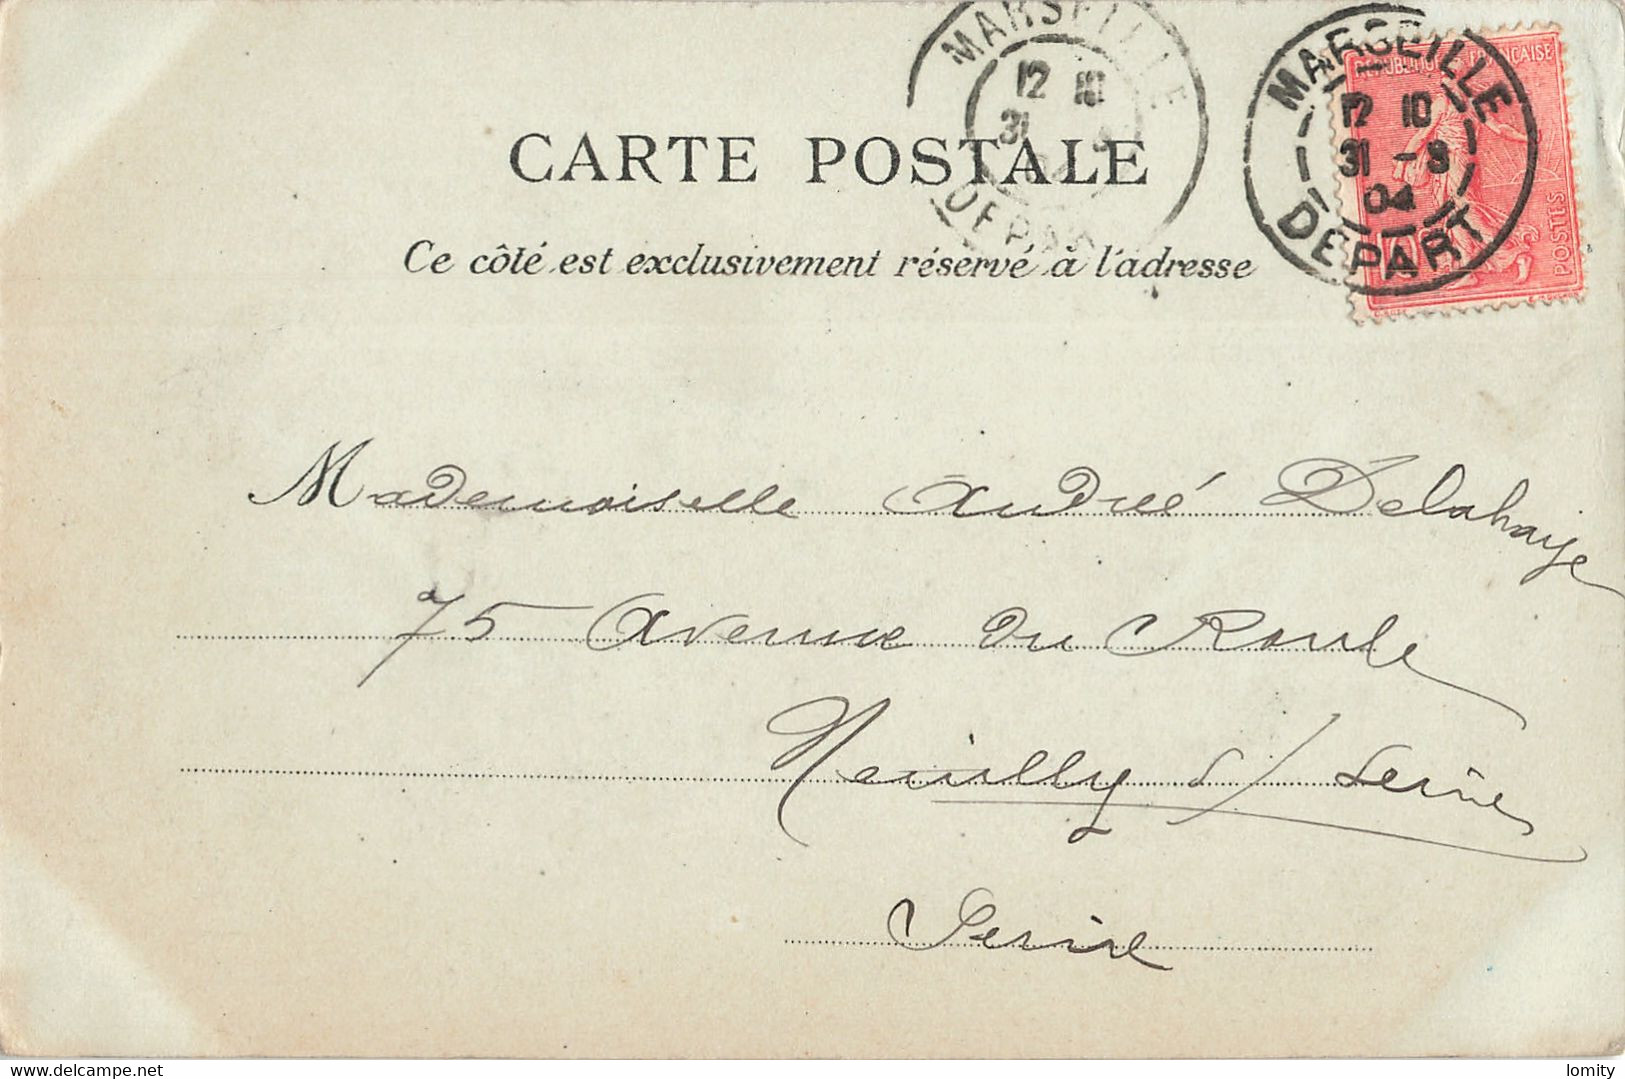 MARSEILLE
12 10
31
DEPART
MARSEILLE
12 10
31 -8
04
DEPART
REPUBLIQUE FRANÇAISE
POSTES
CARTE POSTALE
Ce côté est exclusivement réservé à l'adresse
Mademoiselle Andreé Delahaye
75 Avenue du Roule
Neuilly s/ Seine
Seine
www.delcampe.net
lomity